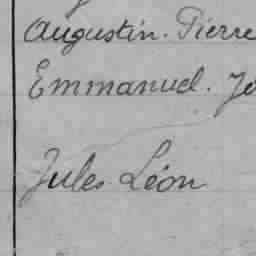 Augustin. Pierre
Emmanuel.
Jules Léon